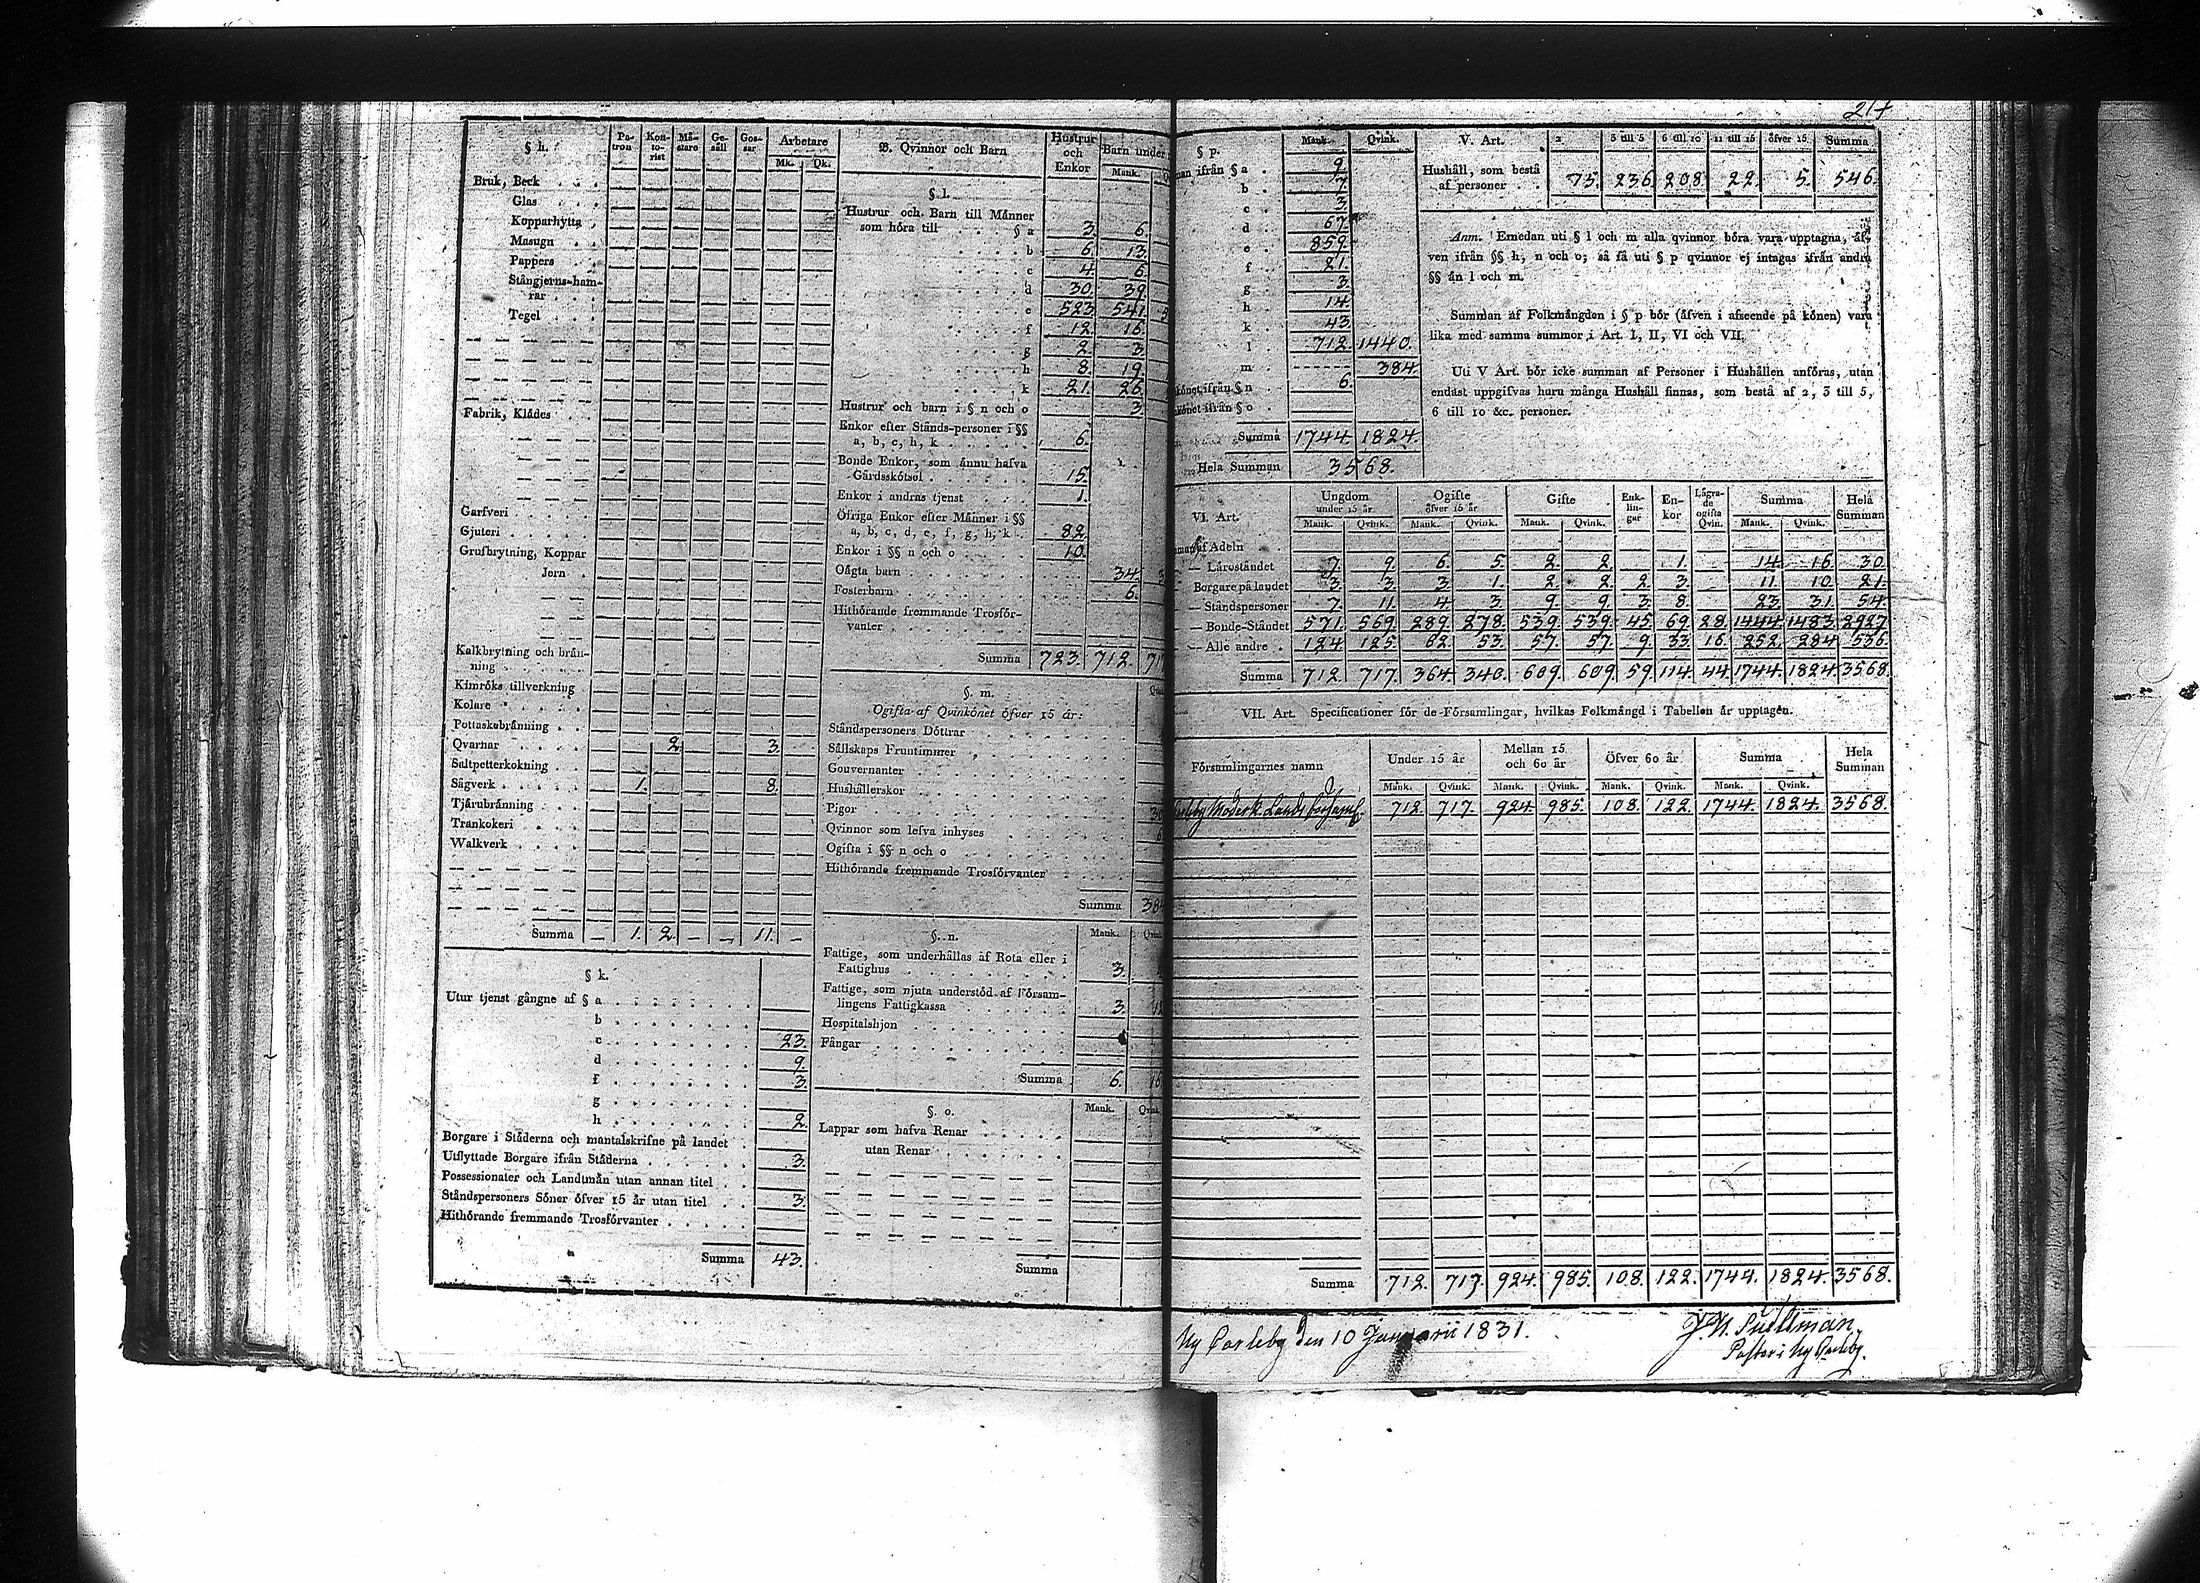 217
§ h.
Patron Kontorist Mästare Gesäll Gossar Arbetare
Mk. Qk.
Bruk, Beck . . .
Glas . . .
Kopparhytta .
Masugn . .
Pappers . .
Stångjerns-ham-
rar . . .
Tegel . . .
Fabrik, Klådes . .
Garfveri . . . .
Gjuteri . . . . .
Grufbrytning, Koppar
Jern .
Kalkbrytning och brån-
ning . . . . .
Kimröks tillverkning
Kolare . . . . .
Pottaskebrånning . .
Qvarnar . . . . 2. 3.
Saltpetterkokning . .
Sågverk . . . . . 1. 8.
Tjärubrånning . . .
Trankokeri . . . .
Walkverk . . . . .
Summa — 1. 2. — — 11. —
§ k.
Utur tjenst gångne af § a . . . . . . .
b . . . . . . .
c . . . . . . . 23.
d . . . . . . . 9.
f . . . . . . . 3.
g . . . . . . .
h . . . . . . . 2.
Borgare i Ståderna och mantalskrifne på landet .
Utflyttade Borgare ifrån Ståderna . . . . . . 3.
Possessionater och Landtmån utan annan titel . .
Ståndspersoners Söner öfver 15 år utan titel . . 3.
Hithörande fremmande Trosförvanter . . . . .
Summa 43.
B. Qvinnor och Barn
Hustrur och Enkor Barn under
Mank.
§ l.
Hustrur och Barn till Månner
som höra till . . . § a 3. 6.
b 6. 13.
c 4. 6.
d 30. 39.
e 523. 541.
f 12. 16.
g 2. 3.
h 8. 19.
k 21. 26.
Hustrur och barn i § n och o 3.
Enkor efter Stånds-personer i §§
a, b, c, h, k . . . . . 6.
Bonde Enkor, som ånnu hafva
Gårdsskötsel . . . . . 15.
Enkor i andras tjenst . . . 1.
Öfriga Enkor efter Månner i §§
a, b, c, d, e, f, g, h, k . 82.
Enkor i §§ n och o . . . . 10.
Oågta barn . . . . . . . 34.
Fosterbarn . . . . . . . 6.
Hithörande fremmande Trosför-
vanter . . . . . . .
Summa 723. 712. 717
§. m.
Ogifta af Qvinkönet öfver 15 år:
Ståndspersoners Döttrar . . . . . . .
Sällskaps Fruntimmer . . . . . . .
Gouvernanter . . . . . . .
Hushållerskor . . . . . . .
Pigor . . . . . . .
Qvinnor som lefva inhyses . . . . . .
Ogifta i §§ n och o . . . . . . .
Hithörande fremmande Trosförvanter . . . .
Summa 384
§. n. Mank.
Fattige, som underhållas af Rota eller i
Fattighus . . . . . . . 3.
Fattige, som njuta understöd af Försam-
lingens Fattigkassa . . . . . 3.
Hospitalshjon . . . . . . .
Fångar . . . . . . .
Summa 6.
§. o. Mank.
Lappar som hafva Renar . . . . .
utan Renar . . . . . .
Summa
§ p. Mank. Qvink.
ifrån § a . 9.
b . 7.
c . 3.
d . 67.
e . 859.
f . 21.
g . 3.
h . 14.
k . 43.
l . 712. 1440.
m . 384.
könet ifrån § n . 6.
könet ifrån § o .
Summa 1744. 1824.
Hela Summan 3568.
V. Art. 2 3 till 5 6 till 10 11 till 15 öfver 15. Summa
Hushåll, som bestå
af personer . . 75. 236. 208. 22. 5. 546.
Anm. Emedan uti § l och m alla qvinnor böra vara upptagna, äf-
ven ifrån §§ h, n och o; så få uti § p qvinnor ej intagas ifrån andra
§§ än l och m.
Summan af Folkmängden i § p bör (äfven i afseende på könen) vara
lika med samma summor i Art. I, II, VI och VII.
Uti V Art. bör icke summan af Personer i Hushållen anföras, utan
endast uppgifvas huru många Hushåll finnas, som bestå af 2, 3 till 5,
6 till 10 &c. personer.
VI. Art. Ungdom under 15 år Ogifte öfver 15 år Gifte Enklingar Enkor Lägrade ogifta Qvin. Summa Hela Summan
Mank. Qvink. Mank. Qvink. Mank. Qvink. Mank. Qvink.
af Adeln
— Låroståndet 7. 9. 6. 5. 2. 2. 1. — 14. 16. 30.
Borgare på landet 3. 3. 3. 1. 2. 2. 2. 3. 11. 10. 21.
— Ståndspersoner 7. 11. 4. 3. 9. 9. 3. 8. — 23. 31. 54.
— Bonde-Ståndet 571. 569. 289. 278. 539. 539. 45. 69. 28. 1444. 1483. 2927.
— Alle andre . 124. 125. 62. 53. 57. 57. 9. 33. 16. 252. 284. 536.
Summa 712. 717. 364. 340. 609. 609. 59. 114. 44. 1744. 1824. 3568.
VII. Art. Specificationer för de Församlingar, hvilkas Folkmängd i Tabellen är upptagen.
Församlingarnes namn Under 15 år Mellan 15 och 60 år Öfver 60 år Summa Hela Summan
Mank. Qvink. Mank. Qvink. Mank. Qvink. Mank. Qvink.
Moderk. Lands församl. 712. 717. 924. 985. 108. 122. 1744. 1824. 3568.
Summa 712. 717. 924. 985. 108. 122. 1744. 1824. 3568.
Ny Carleby den 10 Januarii 1831.
Pastor i Ny Carleby.